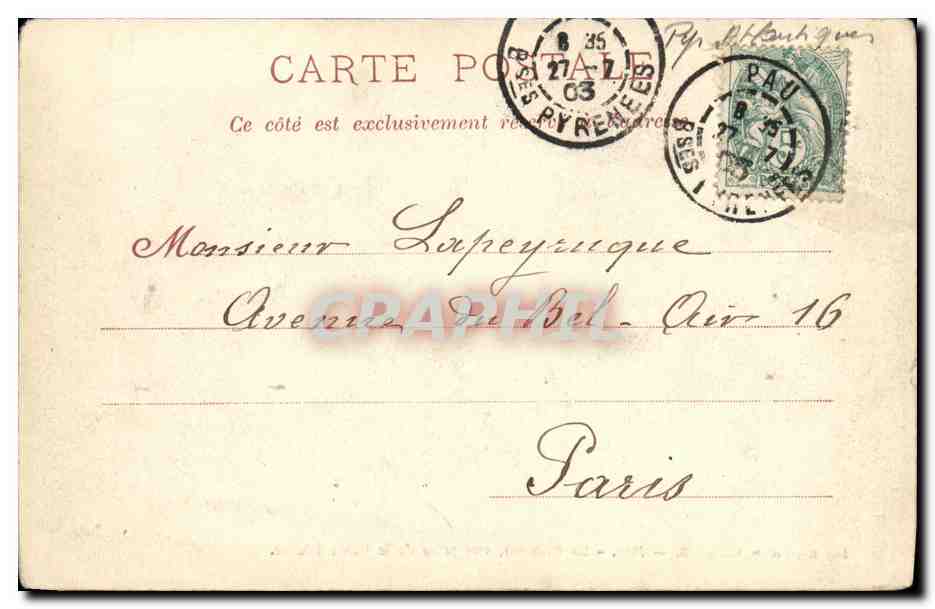 Pyr Atlantiques
CARTE POSTALE
Ce côté est exclusivement réservé à l'adresse
8 35
27 - 7
03
BSES PYRENEES
PAU
8 35
27 7
03
BSES PYRENEES
Monsieur Lapeyruque
Avenue du Bel-Air 16
CPARHIL
Paris